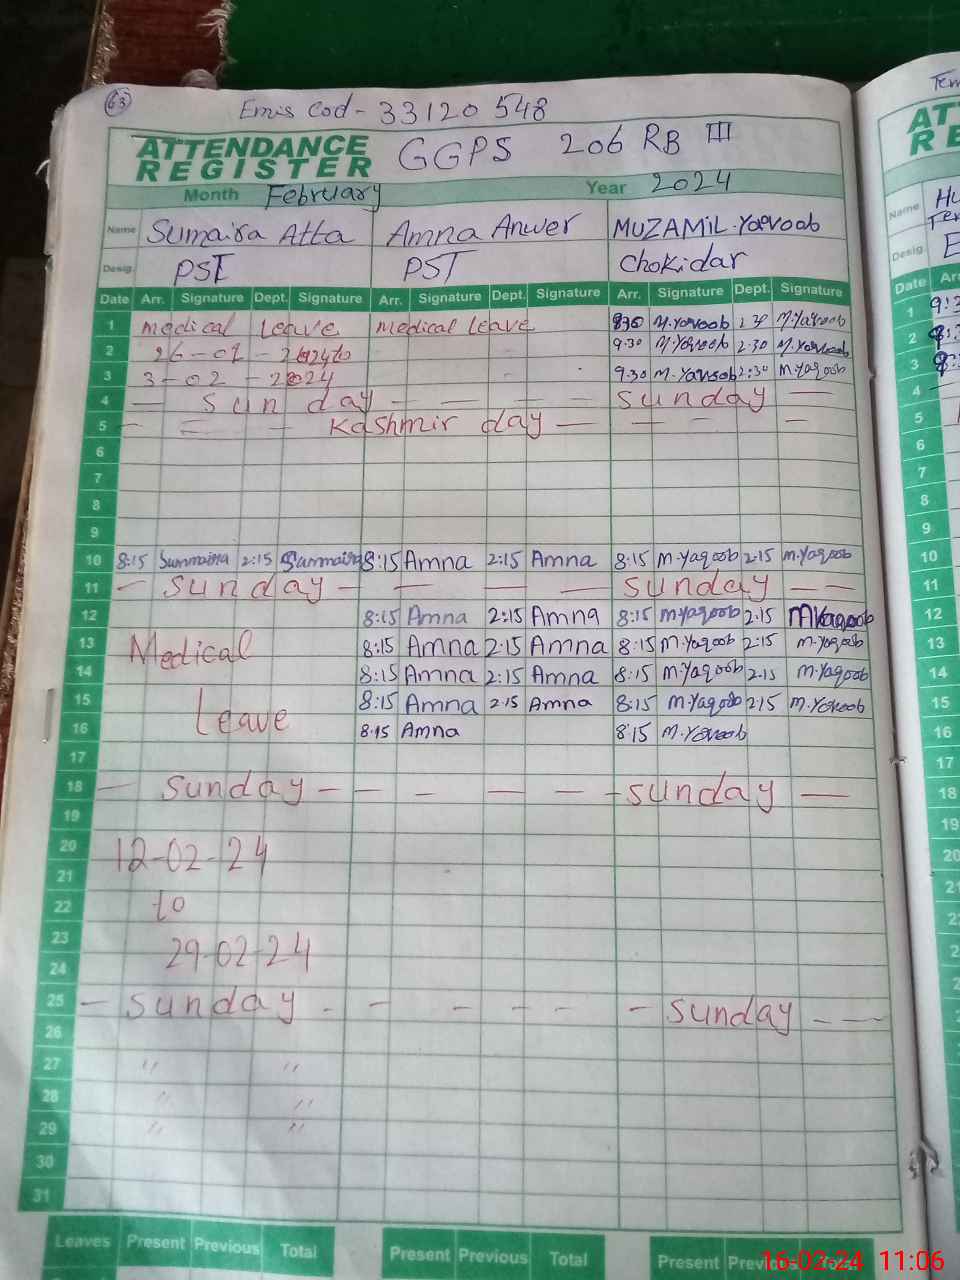 63
Emis Cod - 33120548
ATTENDANCE REGISTER GGPS 206 RB III
Month February Year 2024
Name Sumaira Atta Amna Anwer MUZAMIL.Yaqoob
Desig. PST PST Chokidar
Date Arr. Signature Dept. Signature Arr. Signature Dept. Signature Arr. Signature Dept. Signature
1 Medical Leave Medical Leave M.Yaqoob M.Yaqoob
2 9.30 M.Yaqoob 2.30 M.Yaqoob
3 3-02-2024 9.30 M.Yaqoob 2:30 M.Yaqoob
4 — Sunday — — — — Sunday —
5 — — — Kashmir day — — — —
6
7
8
9
10 8:15 2:15 8:15 Amna 2:15 Amna 8:15 M.Yaqoob 2.15 M.Yaqoob
11 — Sunday — — — — Sunday — —
12 8:15 Amna 2:15 Amna 8:15 M.Yaqoob 2.15 MYaqoob
13 Medical 8:15 Amna 2:15 Amna 8:15 M.Yaqoob 2:15 M.Yaqoob
14 8:15 Amna 2:15 Amna 8:15 M.Yaqoob 2.15 M.Yaqoob
15 Leave 8:15 Amna 2:15 Amna 8:15 M.Yaqoob 2.15 M.Yaqoob
16 8:15 Amna 8:15 M.Yaqoob
17
18 — Sunday — — — — — - Sunday —
19
20 12-02-24
21
22 to
23 29-02-24
24
25 — Sunday - - - - - - Sunday - —
26
27 〃 〃
28 〃 〃
29 〃 〃
30
31
Leaves Present Previous Total Present Previous Total Present
16-02-24 11:06
AT
RE
Name
Desig.
Date
1
2
3
4
5
6
7
8
9
10
11
12
13
14
15
16
17
18
19
20